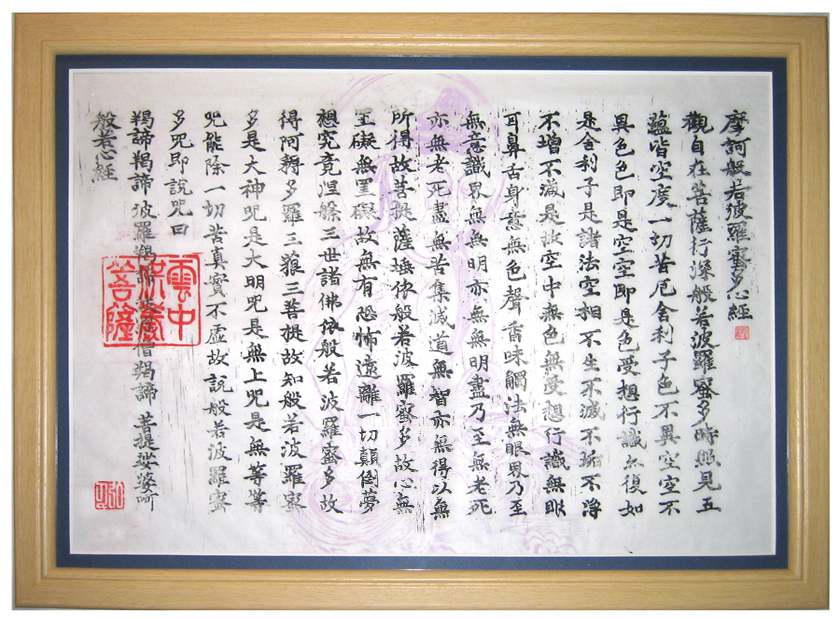 摩訶般若波羅蜜多心經
觀自在菩薩行深般若波羅蜜多時照見五
蘊皆空度一切苦厄舍利子色不異空空不
異色色即是空空即是色受想行識亦復如
是舍利子是諸法空相不生不滅不垢不淨
不增不減是故空中無色無受想行識無眼
耳鼻舌身意無色聲香味觸法無眼界乃至
無意識界無無明亦無無明盡乃至無老死
亦無老死盡無苦集滅道無智亦無得以無
所得故菩提薩埵依般若波羅蜜多故心無
罣礙無罣礙故無有恐怖遠離一切顛倒夢
想究竟涅槃三世諸佛依般若波羅蜜多故
得阿耨多羅三藐三菩提故知般若波羅蜜
多是大神咒是大明咒是無上咒是無等等
咒能除一切苦真實不虛故說般若波羅蜜
多咒即說咒曰
羯諦羯諦 波羅羯諦 波羅僧羯諦 菩提娑婆訶
般若心經
雲中
菩薩